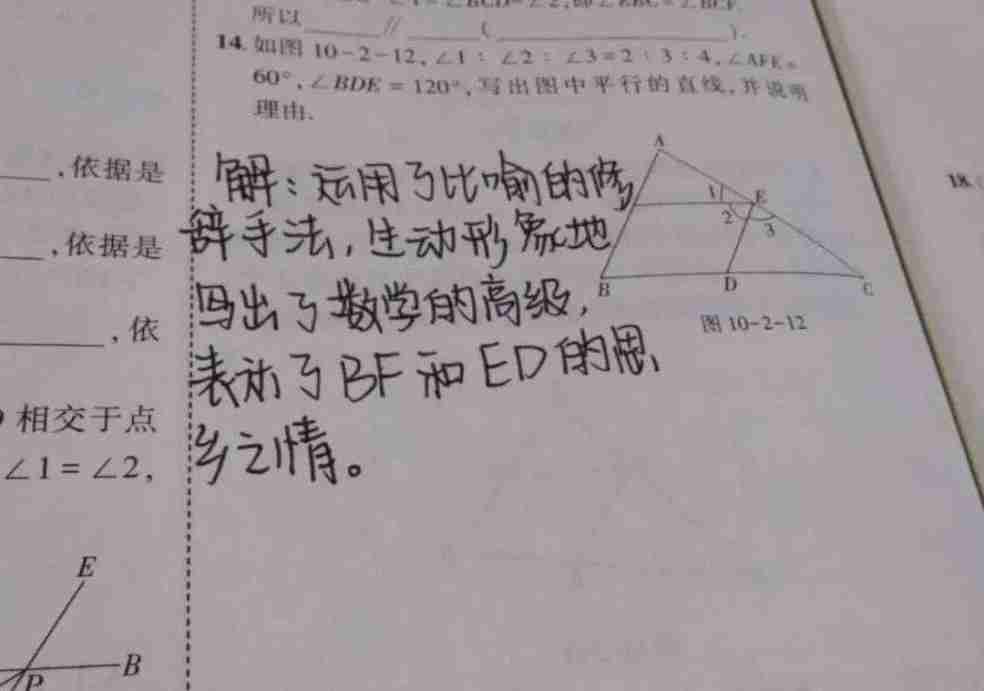 所以______//______(______).
14. 如图 10-2-12, ∠1 : ∠2 : ∠3 = 2 : 3 : 4, ∠AFE =
60°, ∠BDE = 120°, 写出图中平行的直线, 并说明
理由.
解：运用了比喻的修
辞手法, 生动形象地
写出了数学的高级,
表示了BF和ED的思
乡之情。
A
1
E
2
3
B
D
C
图 10-2-12
,依据是
,依据是
,依
相交于点
∠1 = ∠2,
E
B
P
18.